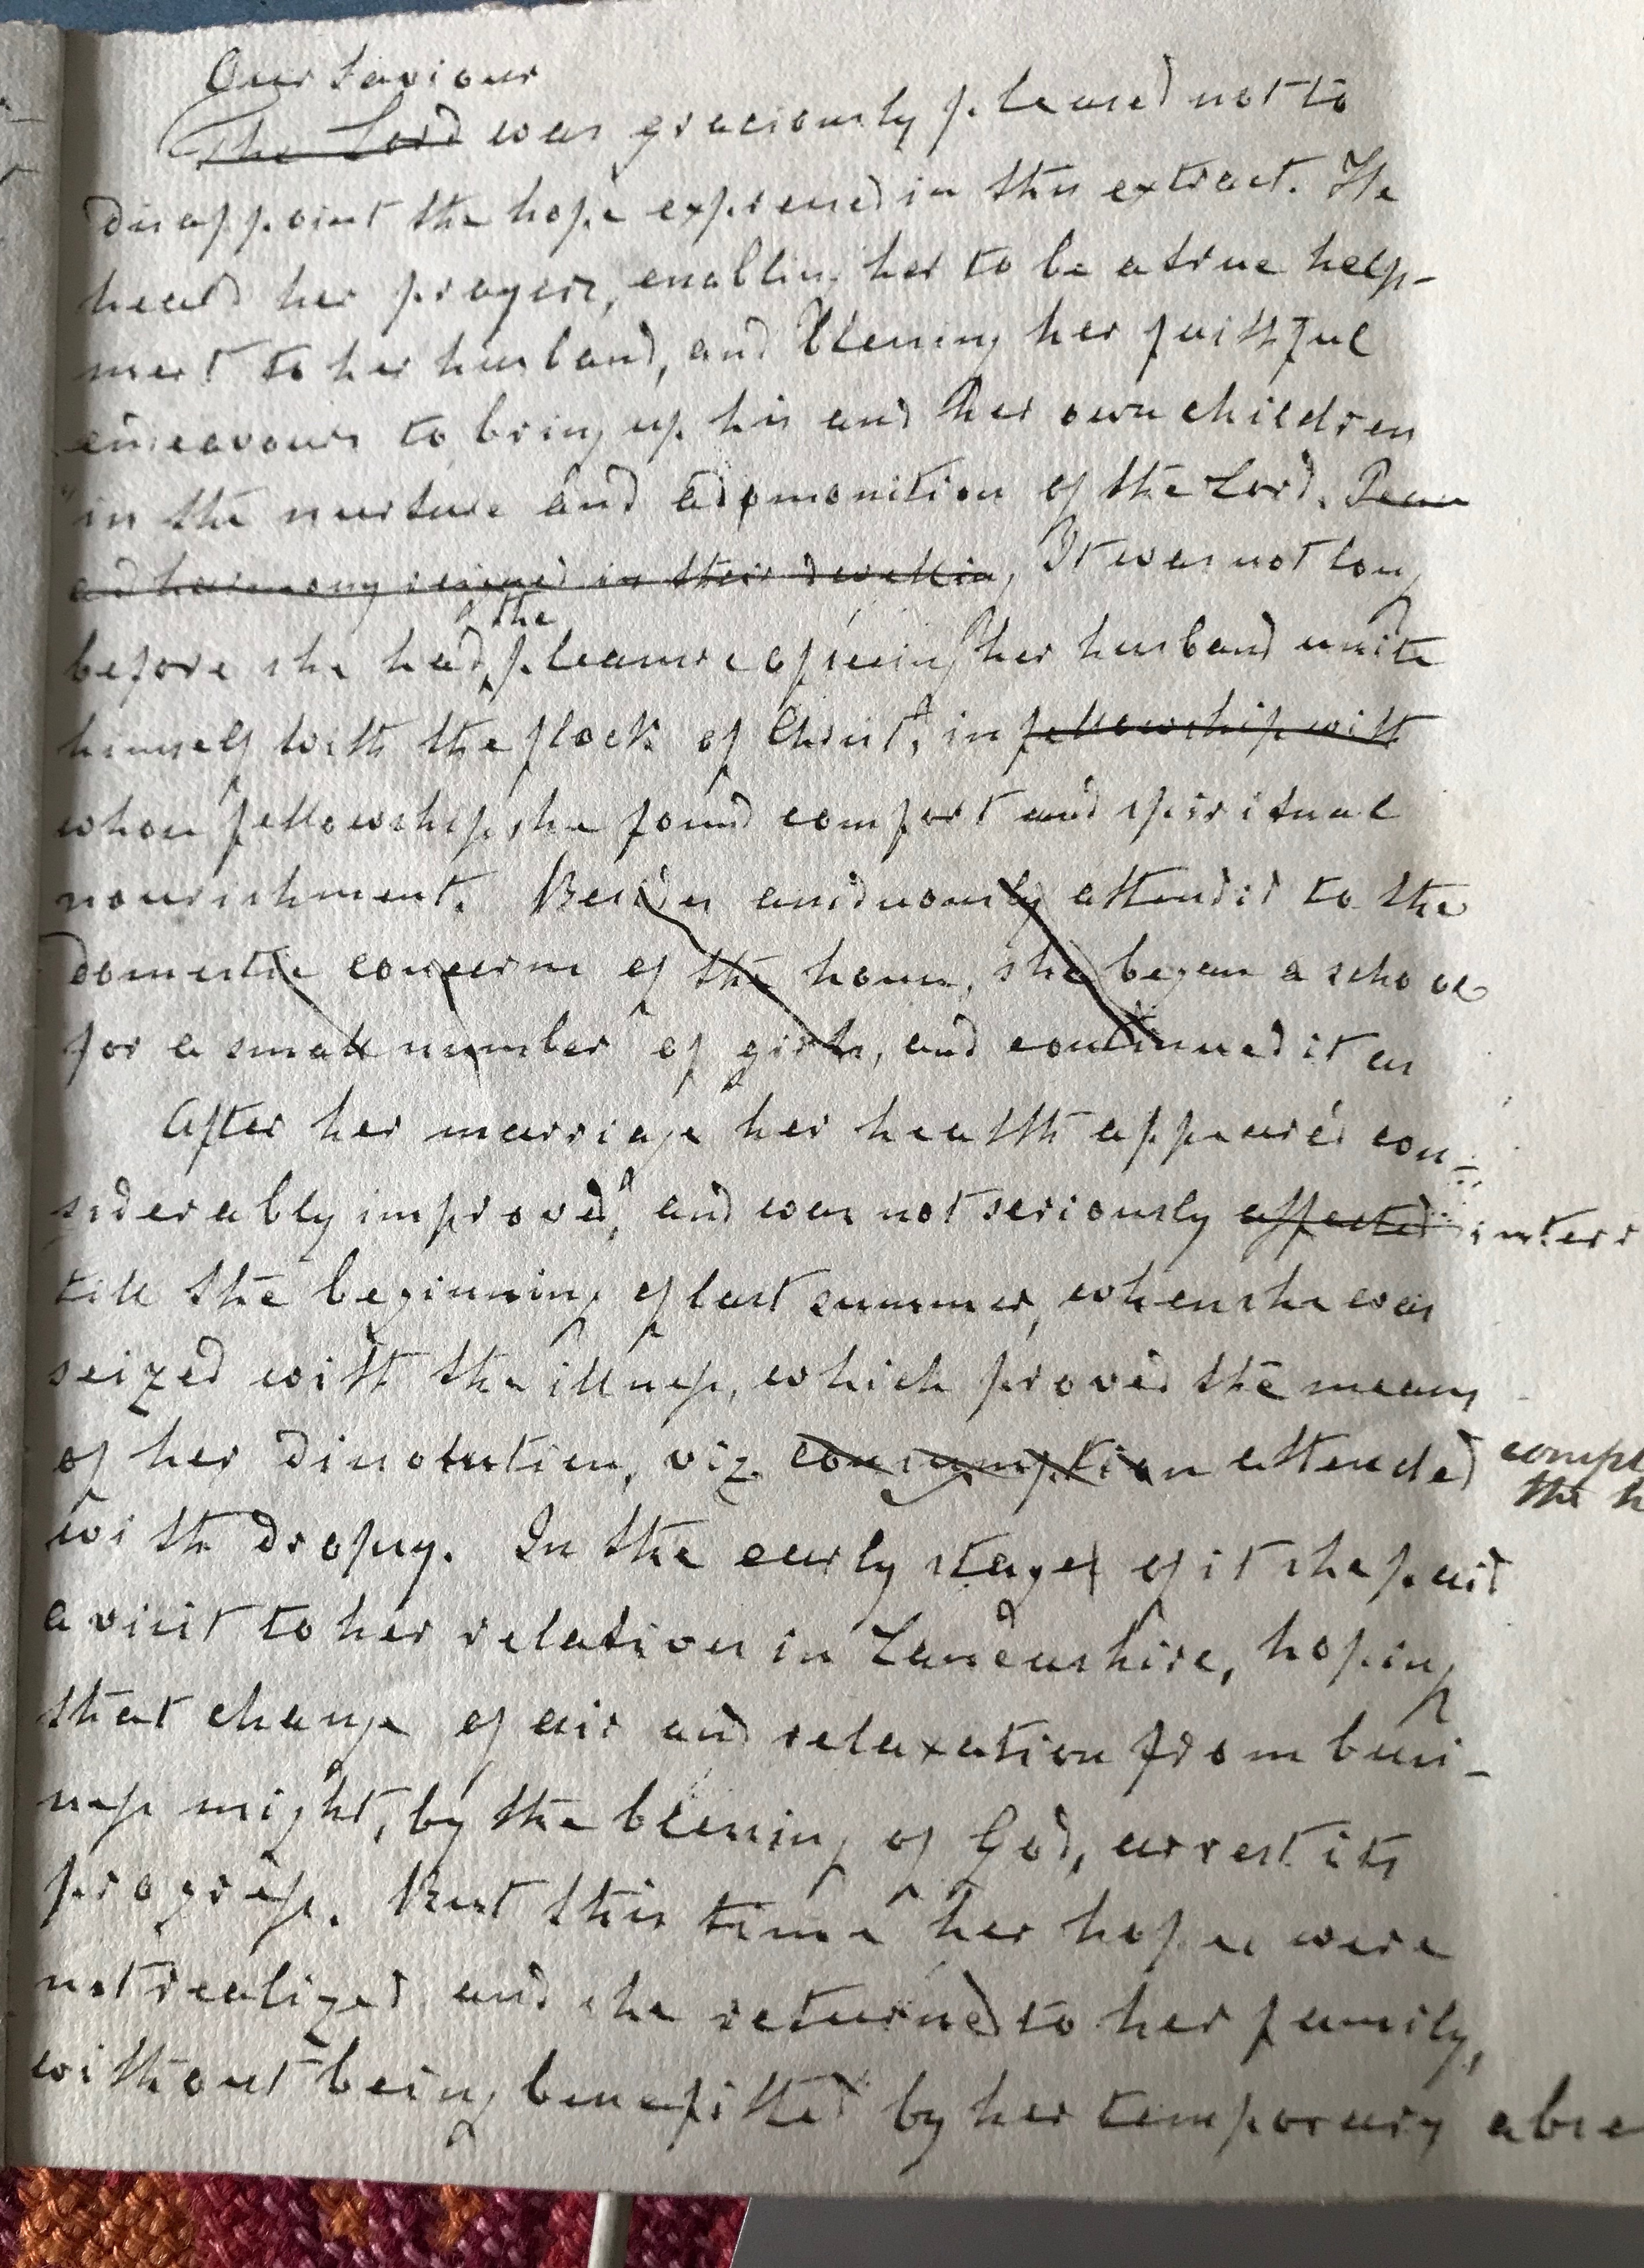 Our Saviour
The Lord was graciously pleased not to
disappoint the hope expressed in this extract. He
heard her prayers, enabling her to be a true help-
meet to her husband, and blessing her faithful
endeavours to bring up his and her own children
"in the nurture and admonition of the Lord. Peace
and harmony reigned in their dwelling, It was not long
the
before she had pleasure of seeing her husband unite
himself with the flock of Christ, in fellowship with
whose fellowship she found comfort and spiritual
nourishment. Besides assiduously attendid to the
domestic concerns of the house, she began a school
for a small number of girls, and continued it as
After her marriage her health appeared con-
siderably improved, and was not seriously affected interr
till the beginning of last summer, when she was
seized with the illness, which proved the means
of her dissolution, viz consumption attended compl
the h
with dropsy. In the early stages of it she paid
a visit to her relations in Lancashire, hoping
that change of air and relaxation from busi-
ness might, by the blessing of God, arrest its
progress. But this time her hopes were
not realized and she returned to her family,
without being benefitted by her temporary abse